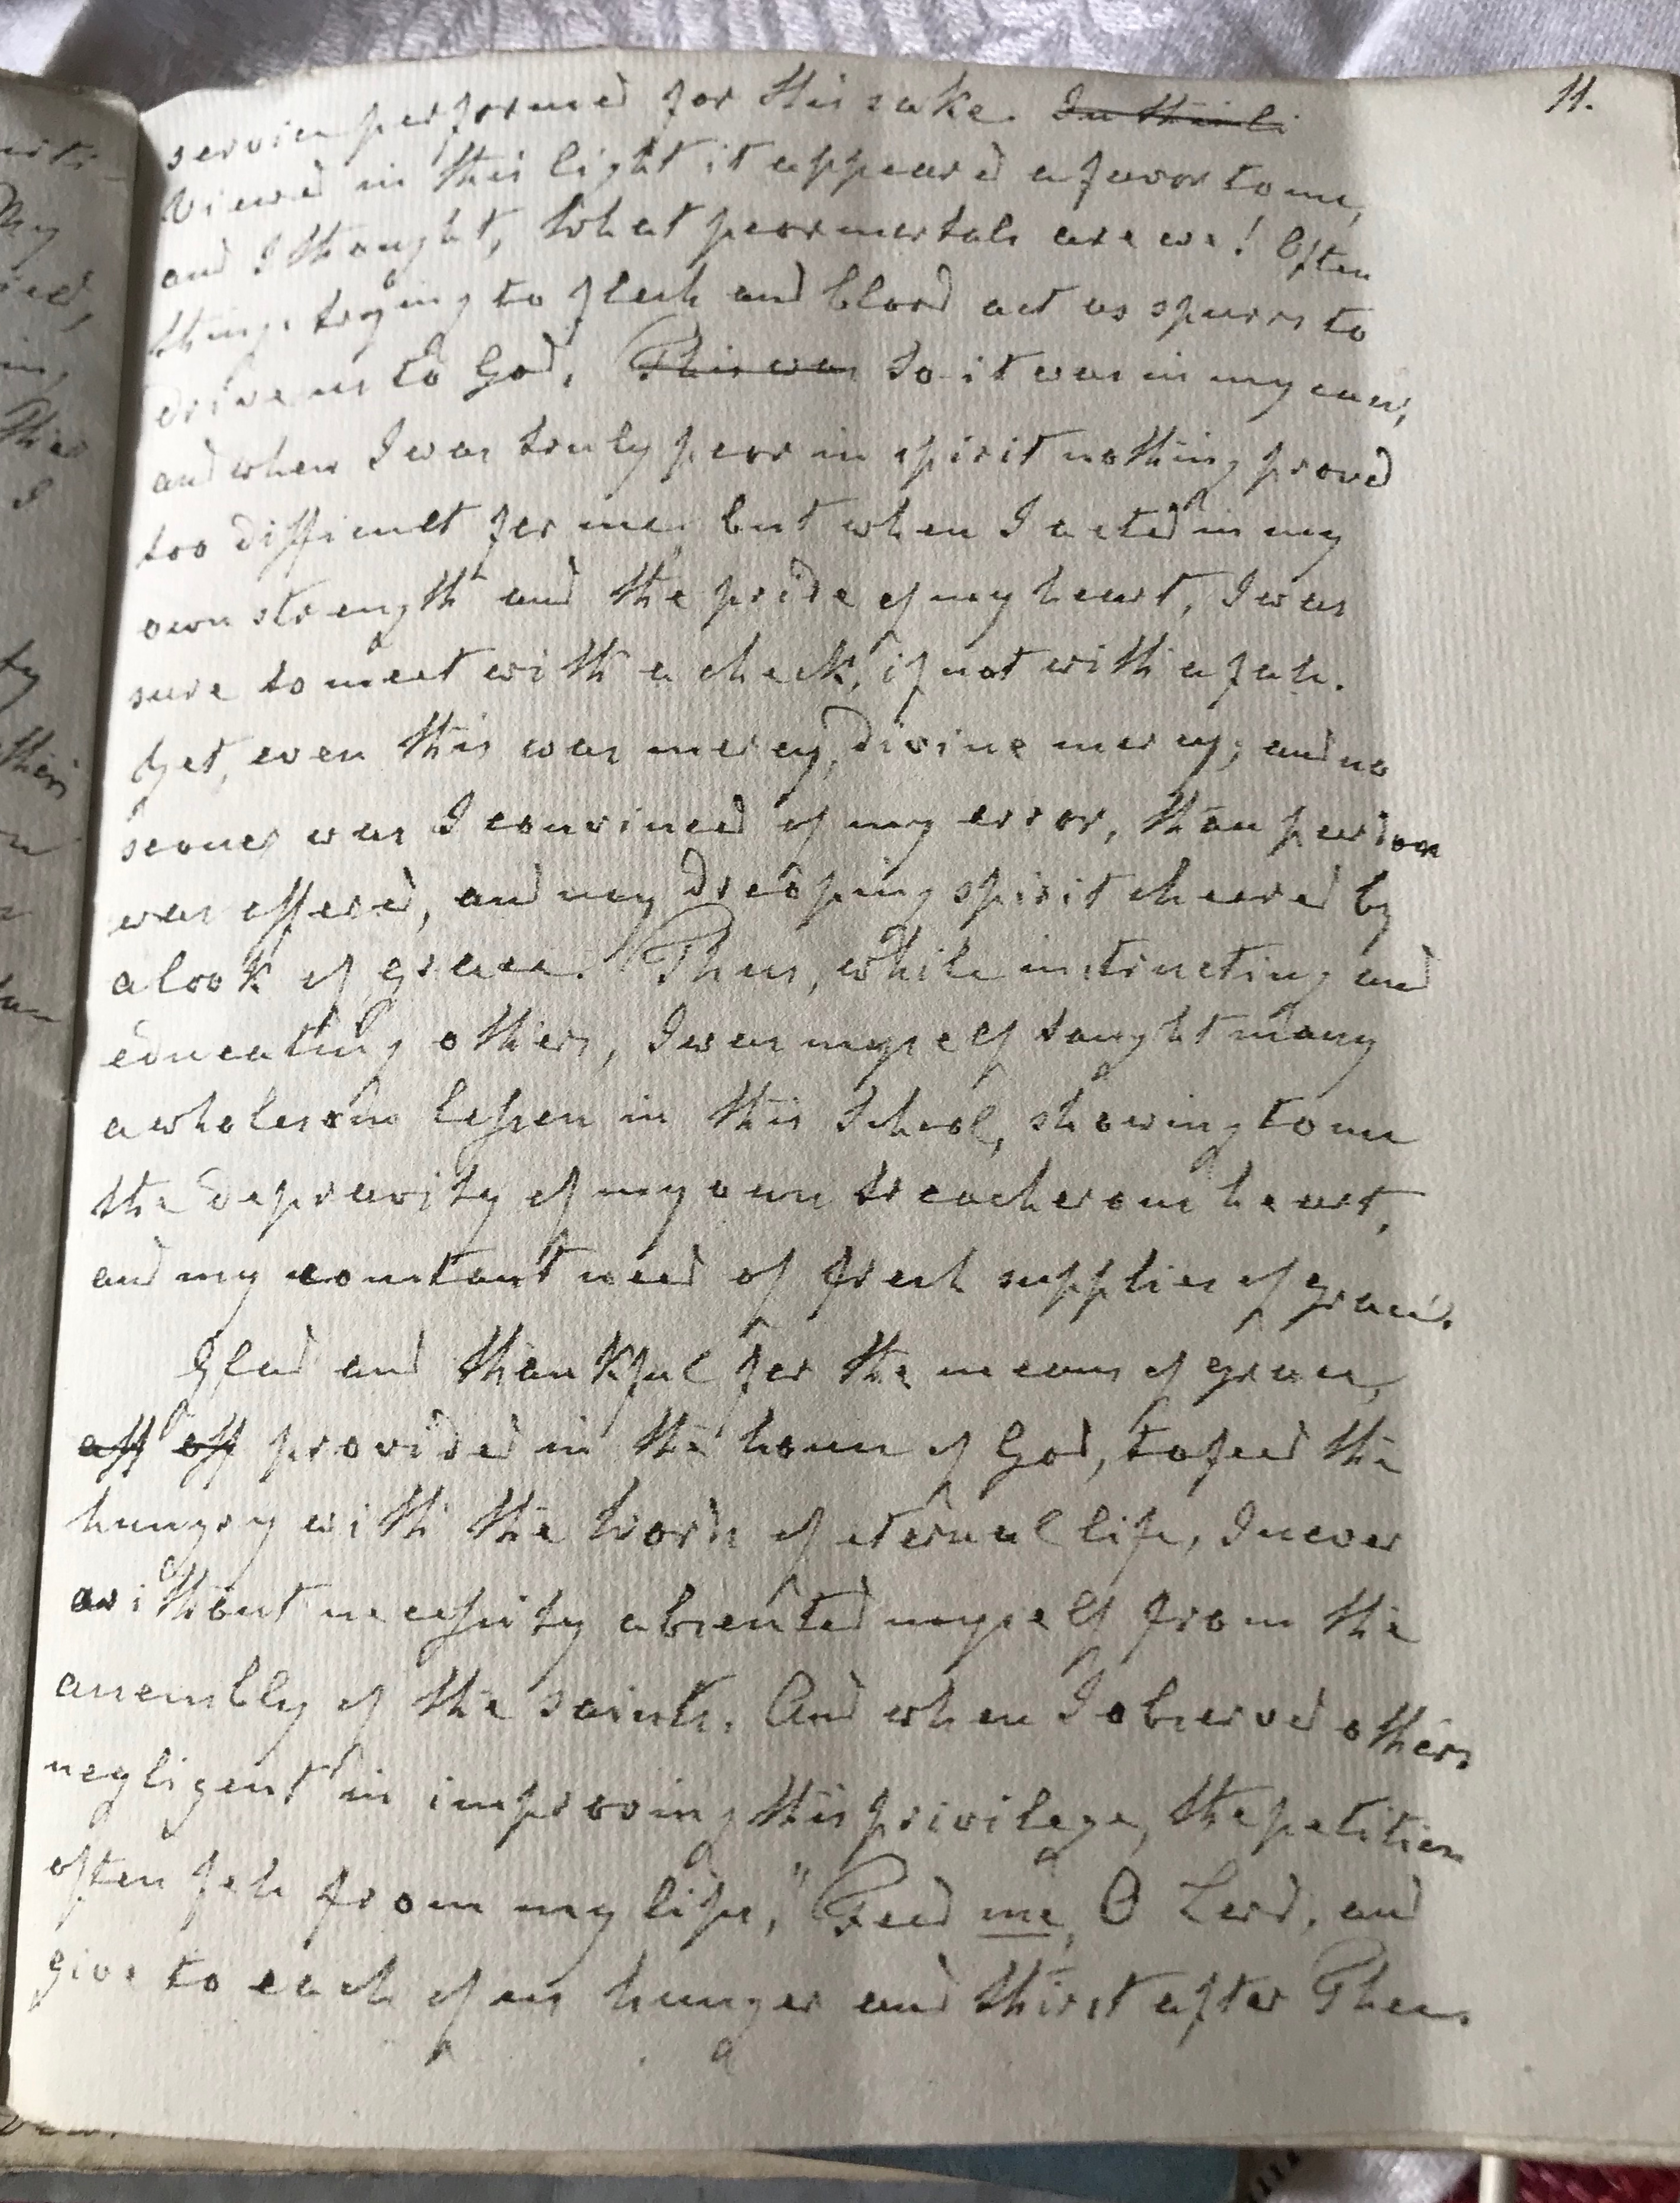 11.
service performed for His sake. In this li
Viewed in this light it appeared a favor to me,
and I thought, What poor mortals are we! Often
things trying to flesh and blood act as spurrs to
drive us to God. This was So it was in my case,
and when I was truly poor in spirit nothing proved
too difficult for me, but when I acted in my
own strength and the pride of my heart, I was
sure to meet with a check, if not with a fall.
Yet, even this was mercy, divine mercy; and no
sooner was I convinced of my error, than pardon
was offered, and my drooping spirit cheered by
a look of grace. Thus, while instructing and
educating others, I was myself taught many
a wholesom lesson in this School, showing to me
the depravity of my own treacherous heart,
and my constant need of fresh supplies of grace.
Glad and thankful for the means of grace,
off off provided in the house of God, to feed the
hungry with the words of eternal life, I never
without necessity absented myself from the
assembly of the saints. And when I observed others
negligent in improving this privilege, the petition
often fell from my lips, "Feed me, O Lord, and
give to each of us hunger and thirst after Thee.